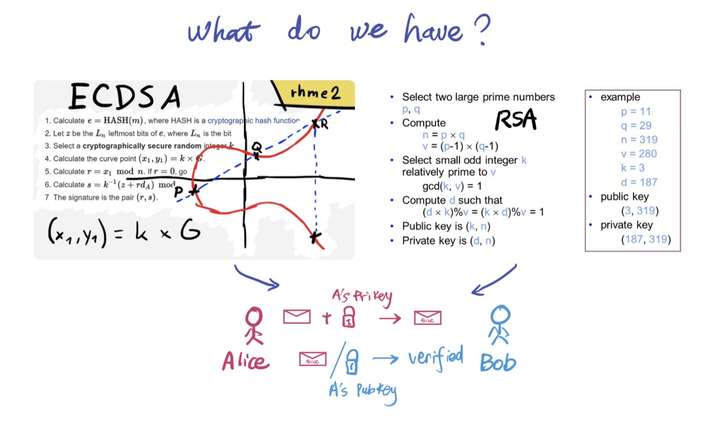 What do we have?
ECDSA
rhme2
1. Calculate e = HASH(m), where HASH is a cryptographic hash function
2. Let z be the Lₙ leftmost bits of e, where Lₙ is the bit
3. Select a cryptographically secure random integer k
4. Calculate the curve point (x₁, y₁) = k × G
5. Calculate r = x₁ mod n. If r = 0, go
6. Calculate s = k⁻¹(z + rd_A) mod
7 The signature is the pair (r, s).
R
Q
P
(x₁, y₁) = k × G
• Select two large prime numbers
p, q
RSA
• Compute
n = p × q
v = (p-1) × (q-1)
• Select small odd integer k
relatively prime to v
gcd(k, v) = 1
• Compute d such that
(d × k)%v = (k × d)%v = 1
• Public key is (k, n)
• Private key is (d, n)
• example
p = 11
q = 29
n = 319
v = 280
k = 3
d = 187
• public key
(3, 319)
• private key
(187, 319)
A's Prikey
+
Alice
/
verified
Bob
A's Pubkey